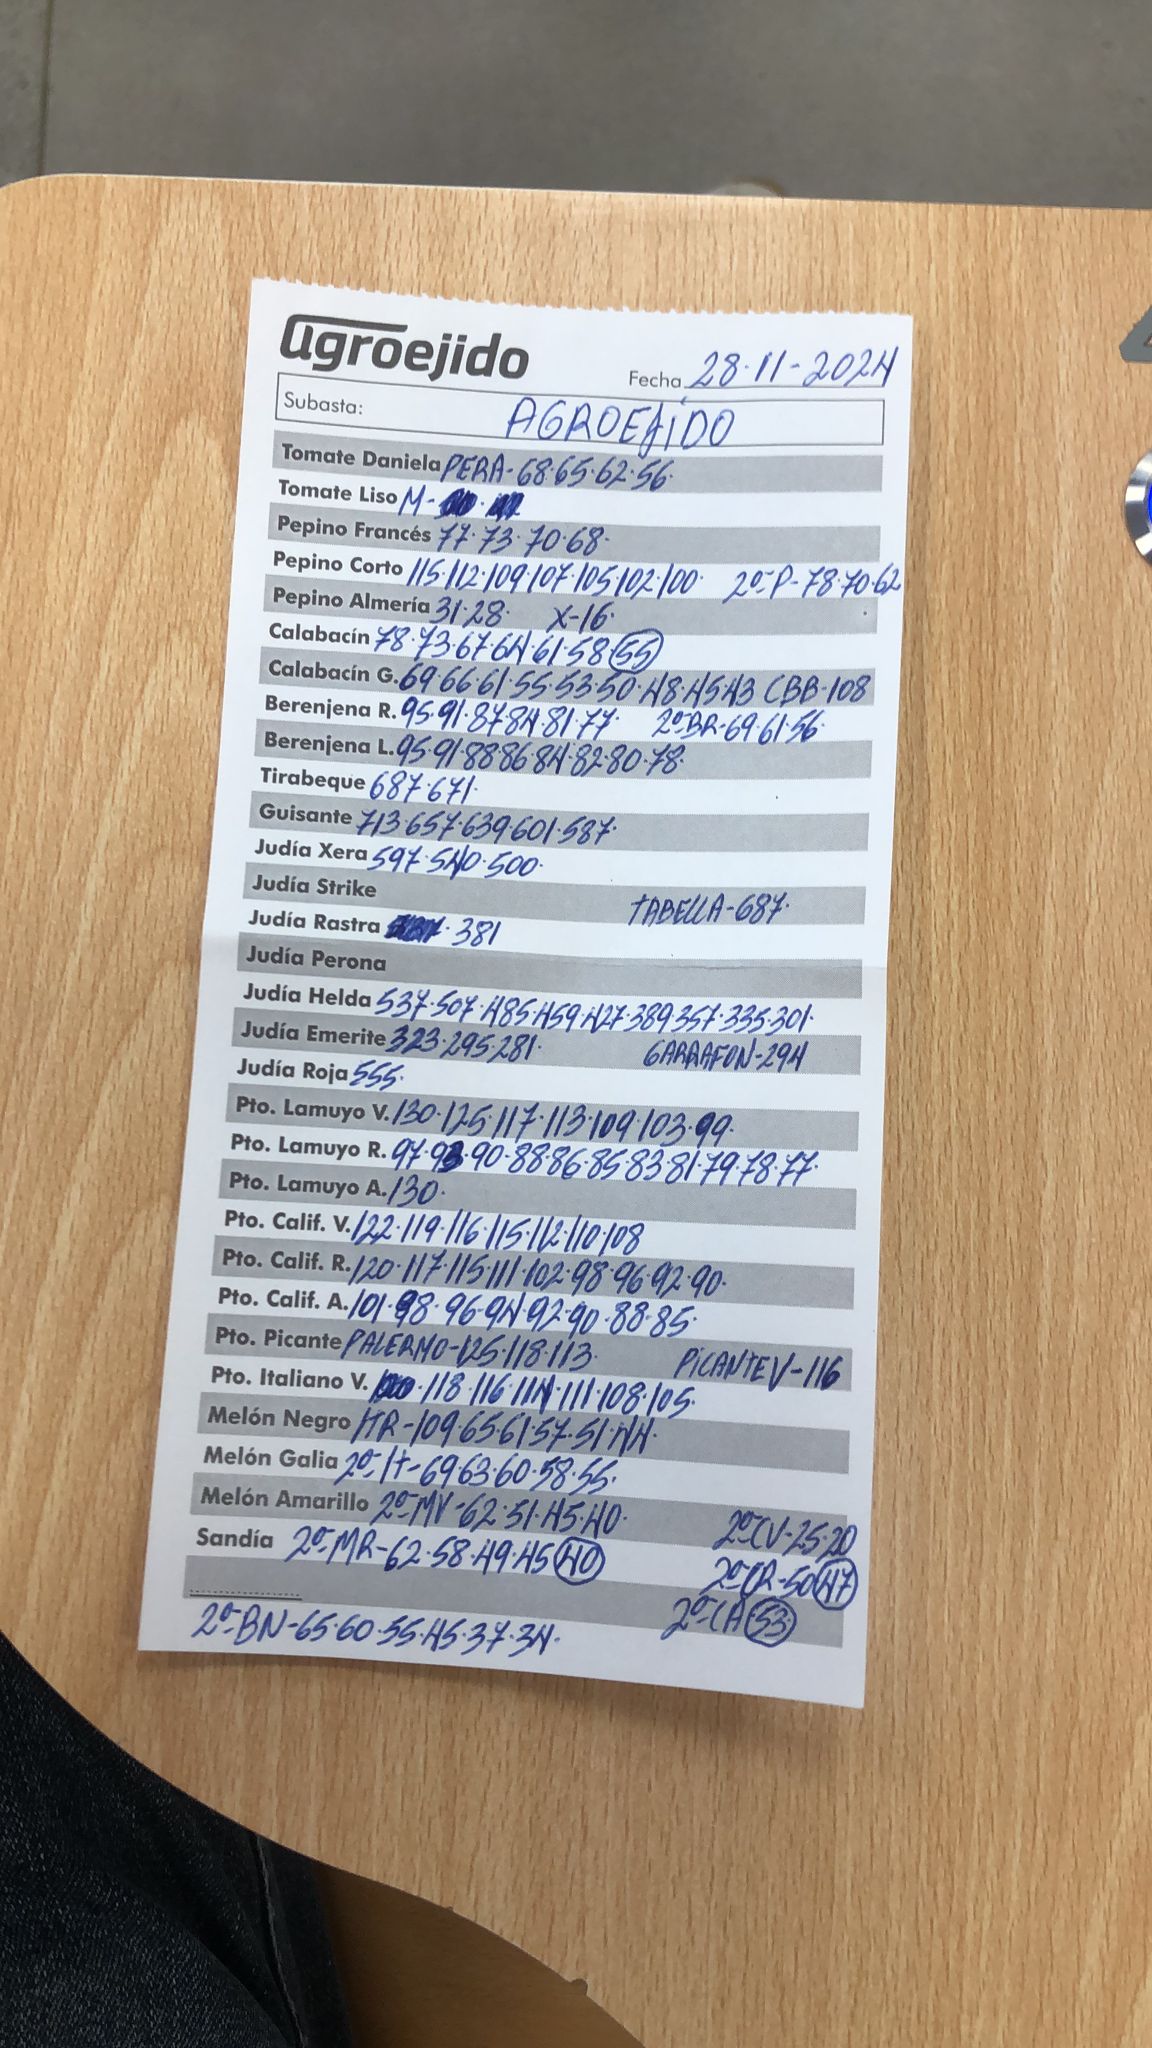 agroejido
Fecha 28-11-2024
Subasta: AGROEJIDO
Tomate Daniela PERA-68·65·62·56·
Tomate Liso M-
Pepino Francés 77·73·70·68·
Pepino Corto 115·112·109·107·105·102·100· 2ª-P-78·70·62
Pepino Almería 31·28· X-16·
Calabacín 78·73·67·64·61·58·55
Calabacín G. 69·66·61·55·53·50·48·45·43 CBB-108
Berenjena R. 95·91·87·84·81·77· 2ª-BR-69·61·56·
Berenjena L. 95·91·88·86·84·82·80·78·
Tirabeque 687·671·
Guisante 713·657·639·601·587·
Judía Xera 597·540·500·
Judía Strike TABELLA-687·
Judía Rastra · 381
Judía Perona
Judía Helda 537·507·485·459·427·389·357·335·301·
Judía Emerite 323·295·281· GARRAFON-294
Judía Roja 555·
Pto. Lamuyo V. 130·125·117·113·109·103·99·
Pto. Lamuyo R. 97·93·90·88·86·85·83·81·79·78·77·
Pto. Lamuyo A. 130·
Pto. Calif. V. 122·119·116·115·112·110·108
Pto. Calif. R. 120·117·115·111·102·98·96·92·90·
Pto. Calif. A. 101·98·96·94·92·90·88·85·
Pto. Picante PALERMO-125·118·113· PICANTE V-116
Pto. Italiano V. ·118·116·114·111·108·105·
Melón Negro ITR-109·65·61·57·51·44·
Melón Galia 2ª-It-69·63·60·58·55·
Melón Amarillo 2ª-MV-62·51·45·40· 2ª-CV-25·20
Sandía 2ª-MR-62·58·49·45·40 2ª-CR-50·47
2ª-CA-53
2ª-BN-65·60·55·45·37·34·